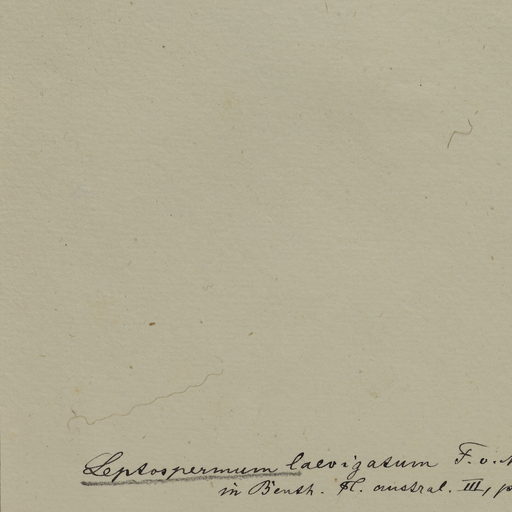 Leptospermum laevigatum F. v.
in Benth. Fl. austral. III,